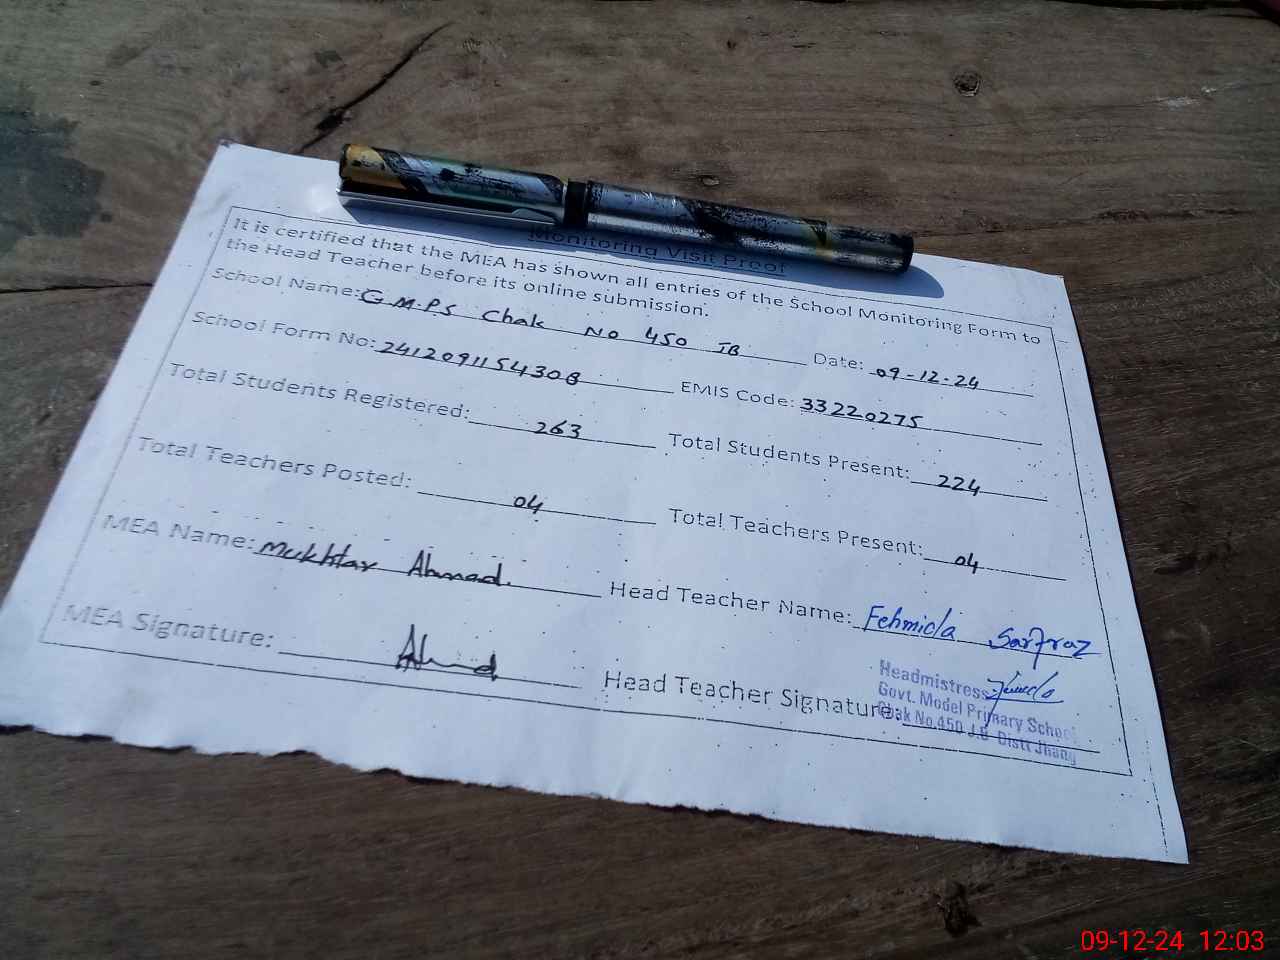 Monitoring Visit Proof
It is certified that the MEA has shown all entries of the School Monitoring Form to
the Head Teacher before its online submission.
School Name: G.M.P.S Chak No 450 JB Date: 09-12-24
School Form No: 2412091154308 EMIS Code: 33220275
Total Students Registered: 263 Total Students Present: 224
Total Teachers Posted: 04 Total Teachers Present: 04
MEA Name: Mukhtar Ahmad. Head Teacher Name: Fehmida Sarfraz
MEA Signature: Ahmad Head Teacher Signature:
Headmistress
Govt. Model Primary School
Chak No.450 J.B Distt Jhang
09-12-24 12:03